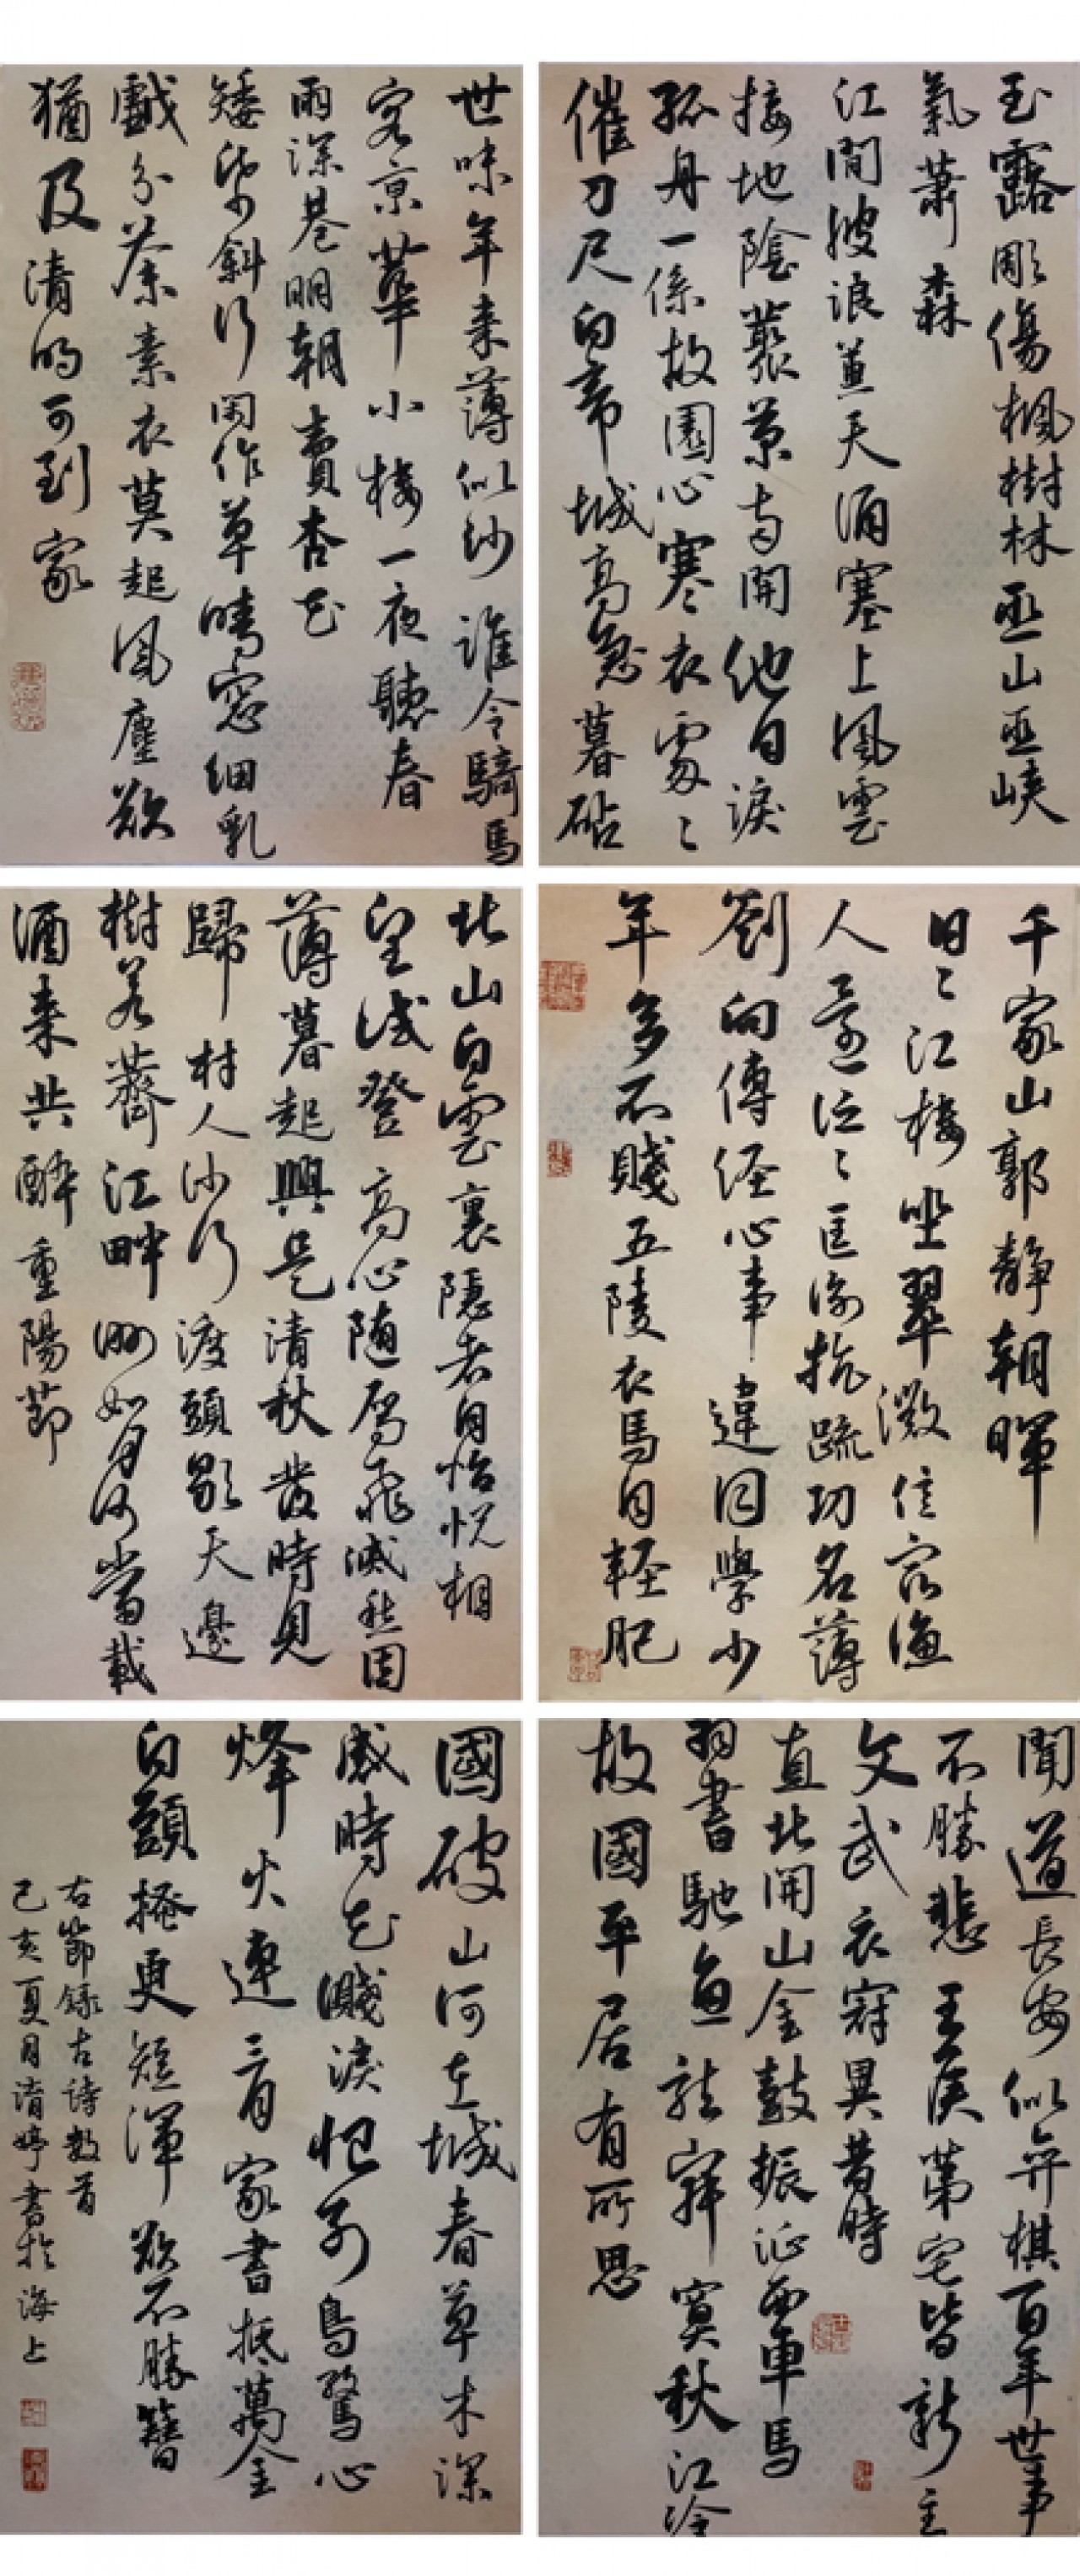 玉露彫傷楓樹林巫山巫峽
氣蕭森
江間波浪兼天涌塞上風雲
接地陰叢菊兩開他日淚
孤舟一係故園心寒衣處〻
催刀尺白帝城高急暮砧
千家山郭靜朝暉
日〻江樓坐翠微信宿漁
人還泛〻匡衡抗疏功名薄
劉向傳經心事違同學少
年多不賤五陵衣馬自輕肥
聞道長安似弈棋百年世事
不勝悲王侯第宅皆新主
文武衣冠異昔時
直北關山金鼓振征西車馬
羽書馳魚龍寂寞秋江冷
故國平居有所思
世味年來薄似紗誰令騎馬
客京華小樓一夜聽春
雨深巷明朝賣杏花
矮紙斜行閑作草晴窗細乳
戲分茶素衣莫起風塵歎
猶及清明可到家
北山白雲裏隱者自怡悅相
望試登高心隨雁飛滅愁因
薄暮起興是清秋發時見
歸村人沙行渡頭歇天邊
樹若薺江畔洲如月何當載
酒來共醉重陽節
國破山河在城春草木深
感時花濺淚恨別鳥驚心
烽火連三月家書抵萬金
白頭搔更短渾欲不勝簪
右節錄古詩數首
己亥夏月清婷書於海上